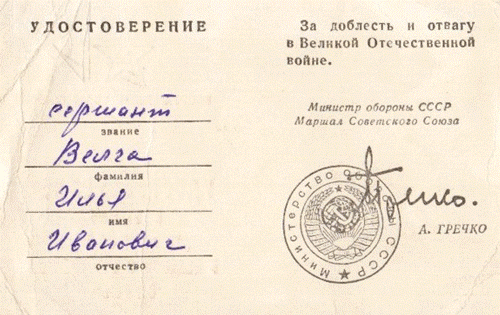 УДОСТОВЕРЕНИЕ
сержант
звание
Велга
фамилия
Илья
имя
Иванович
отчество
За доблесть и отвагу
в Великой Отечественной
войне.
Министр обороны СССР
Маршал Советского Союза
А. ГРЕЧКО
Министерство Обороны
СССР